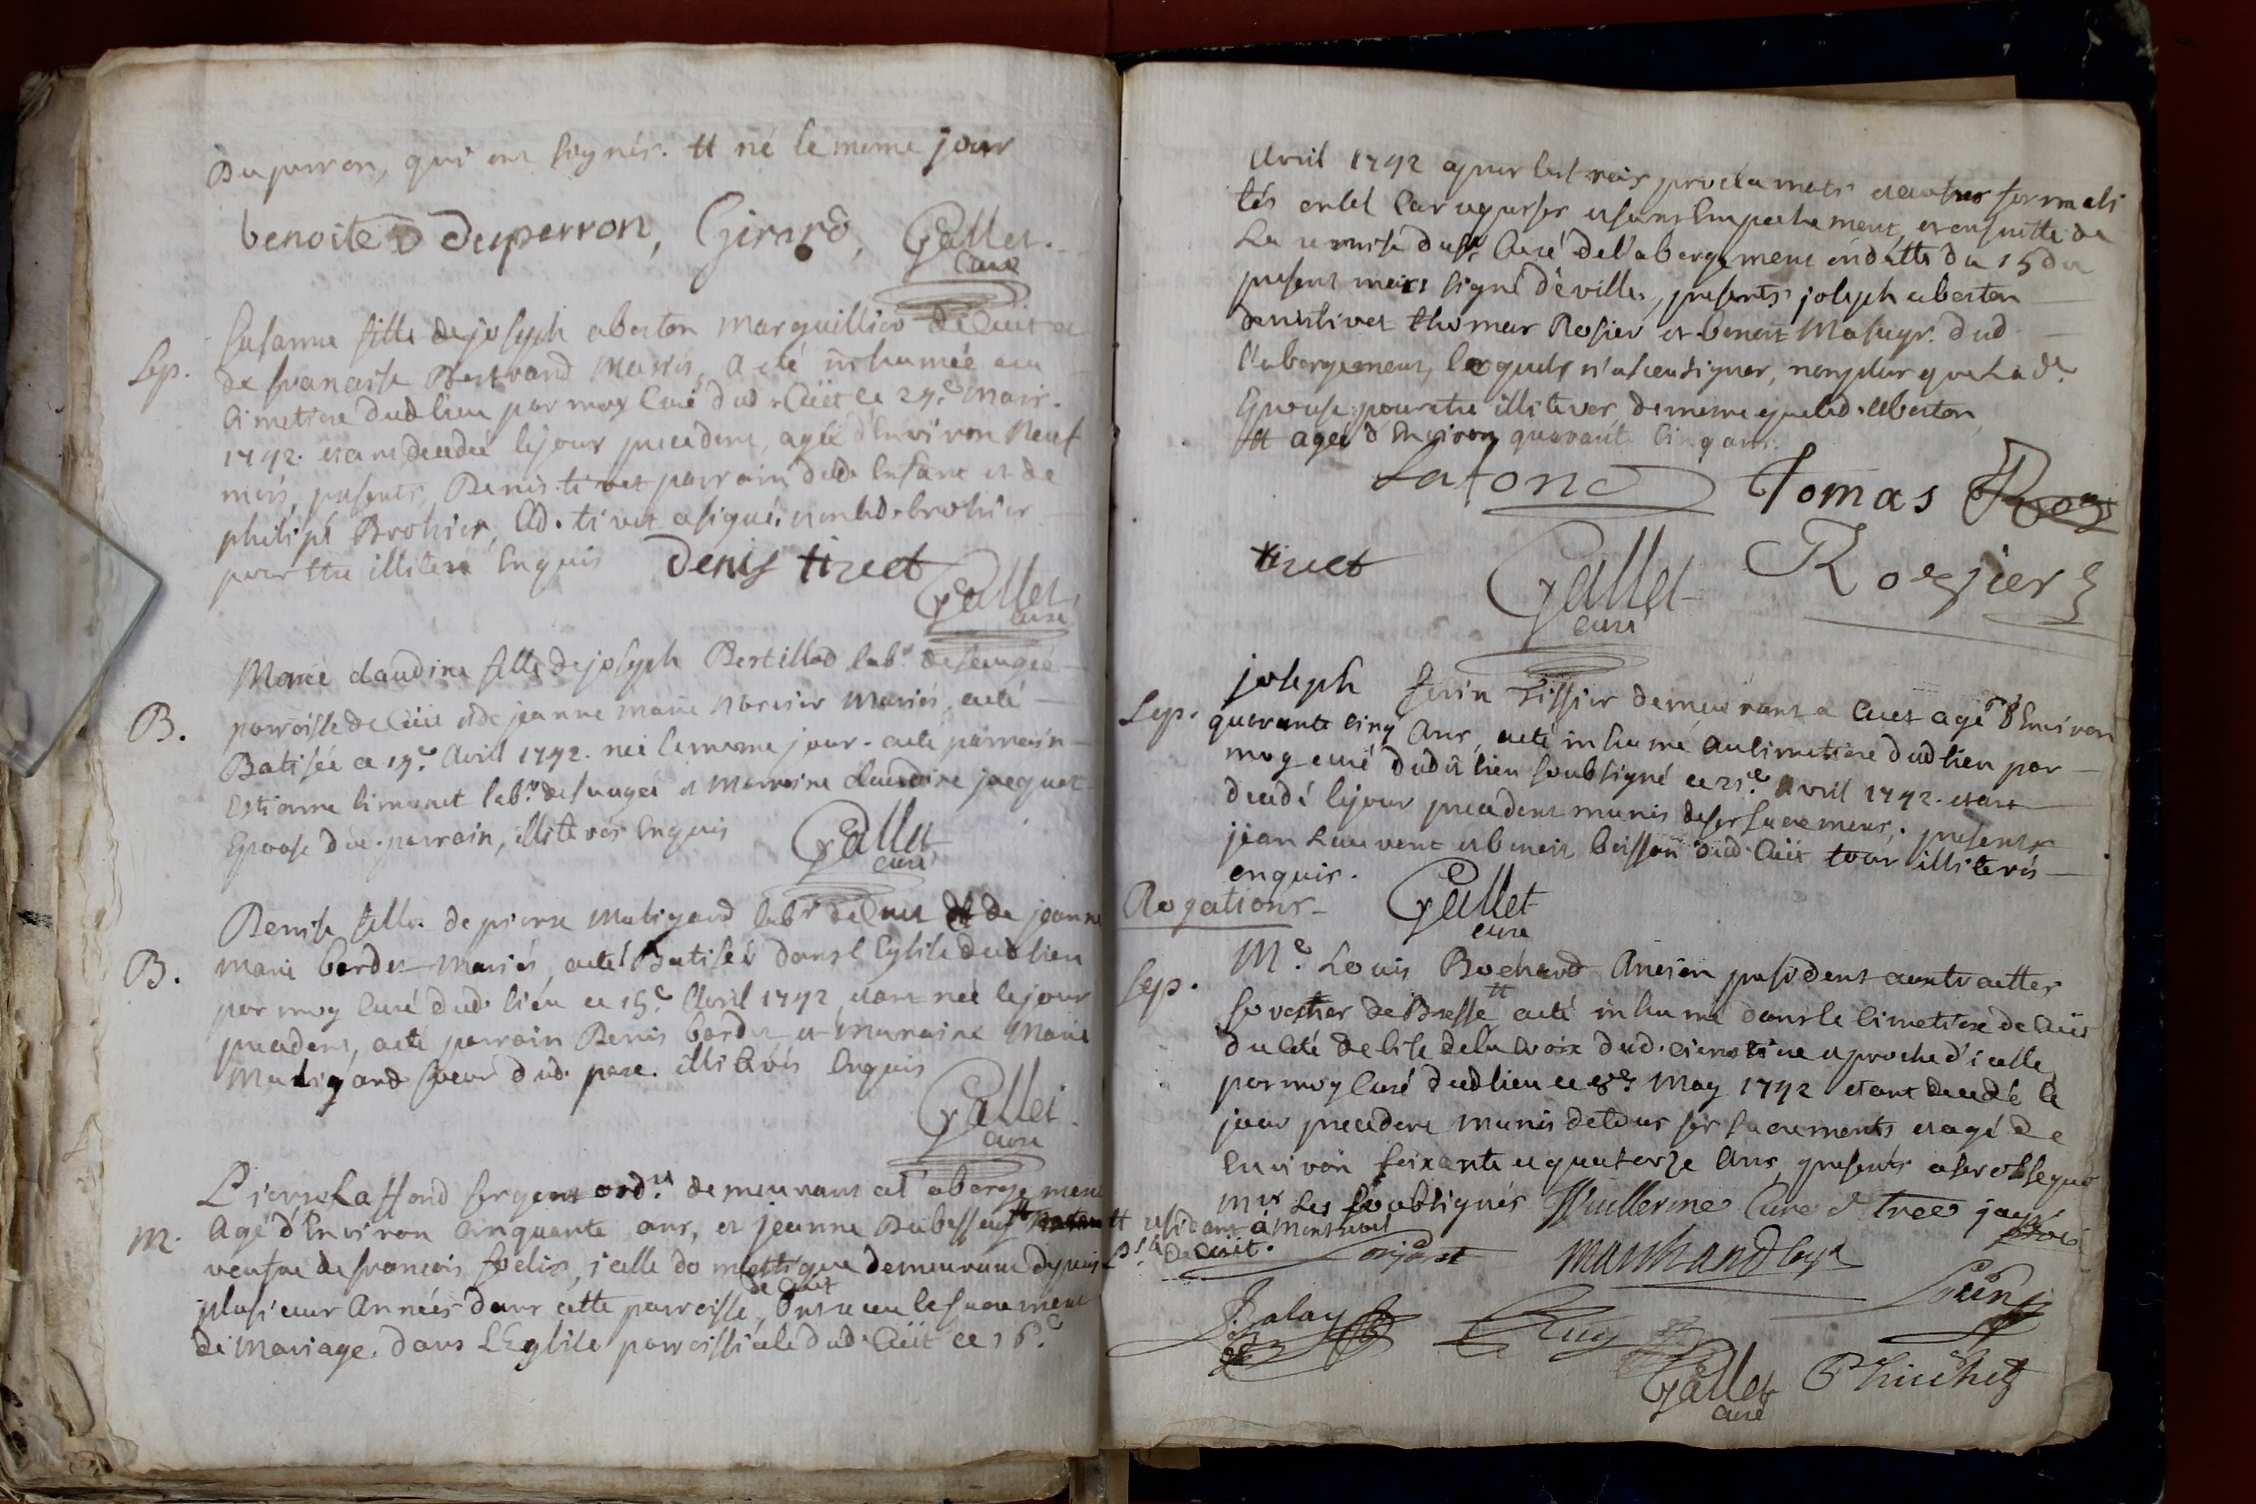 Duperron, qui ont signés. tt né le meme jour
benoite Duperron, Girard, Gallet.
Curé
Sep.
Susanne fille de joseph aberton marguillier de Cuet et
de francoise Bertrand Mariés, a eté inhumée au
Cimetiere dudlieu par moy Curé dud. Cuët ce 29.e Mars
1742. etant decedée lejour precedent, agée d'Environ Neuf
mois, presents, Denis tivet parrain dud. Enfant et de
philipt Brohier, led. tivet a signé, non led. brohier
pour etre illiteré Enquis denis tivet
Gallet,
curé
B.
Marie claudine fille de joseph Bertillod lab.r
parroisse de Cuet et de jeanne marie Mercier Mariés, a eté
Batisée ce 19.e Avril 1742. née le meme jour. a eté parrain
Estienne limonet lab.r et Marraine claudine jacquet
Epouse du d. parrain, illiterés Enquis Gallet
curé
B.
Denise fille de pierre Maligand lab.r de Cuet et de jeanne
marie bordet mariés, a eté Batisée dans l'Eglise dudlieu
par moy Curé dud. lieu ce 15.e Avril 1742, etant née lejour
precedent, a eté parrain Denis bordet et marraine Marie
Maligand soeur dud. pere. illiterés Enquis
Gallet
curé
M.
Pierre Laffond sergent ord.re demeurant a l'abergement
Agé d'Environ Cinquante ans, et jeanne
veufve de francois felix, icelle domestique demeurant depuis
plusieurs Années dans cette parroisse de Cuët, ont reçu le sacrement
de Mariage, dans L'Eglise parroissiale dud. Cuët ce 16.e
Avril 1742 apres les trois proclamats et autres formali
tés en tel cas requises et sans Empechement, et ensuitte de
La remise du Sr. Curé de l'abergement en datte du 15 du
present mois signé déville, presents joseph aberton
denis tivet thomas Rosier et benoit dud.
l'abergement, lesquels n'a sceu signer, non plus que Lad.e
Epouse pour etre illiteres de meme que led. Aberton,
tt agée d'Environ quarante Cinq ans.
Lafond Tomas
tivet Gallet Rogjier
curé
Sep.
joseph ferin tissier demeurant a Cuet agé d'Environ
quarante cinq Ans, a eté inhumé au Cimetiere dudlieu par
moy curé dudit lieu soubsigné ce 21.e Avril 1742. etant
decedé lejour precedent munis de ses sacremens. presents
jean Laurent et benoit buisson dud. Cuët tous illiterés
enquis. Gallet
curé
Rogations
Sep.
M.e Louis Bochard Ancien president aux traittes
foraines de Bresse tt a eté inhumé dans le Cimetiere de Cuet
du coté de bise de la Croix dud. cimetiere et proche d'icelle
par moy Curé dudlieu ce 8.e May 1742 etant decedé le
jour precedent munis de tous ses sacrements, et agé de
Environ soixante et quatorze Ans, presents a ses obseques
mrs Les soubsignés Vuillerme Curé d'Etrez
tt residant à Montrevel
P.sse de Cuët. marchand
Ruy
Gallet
curé